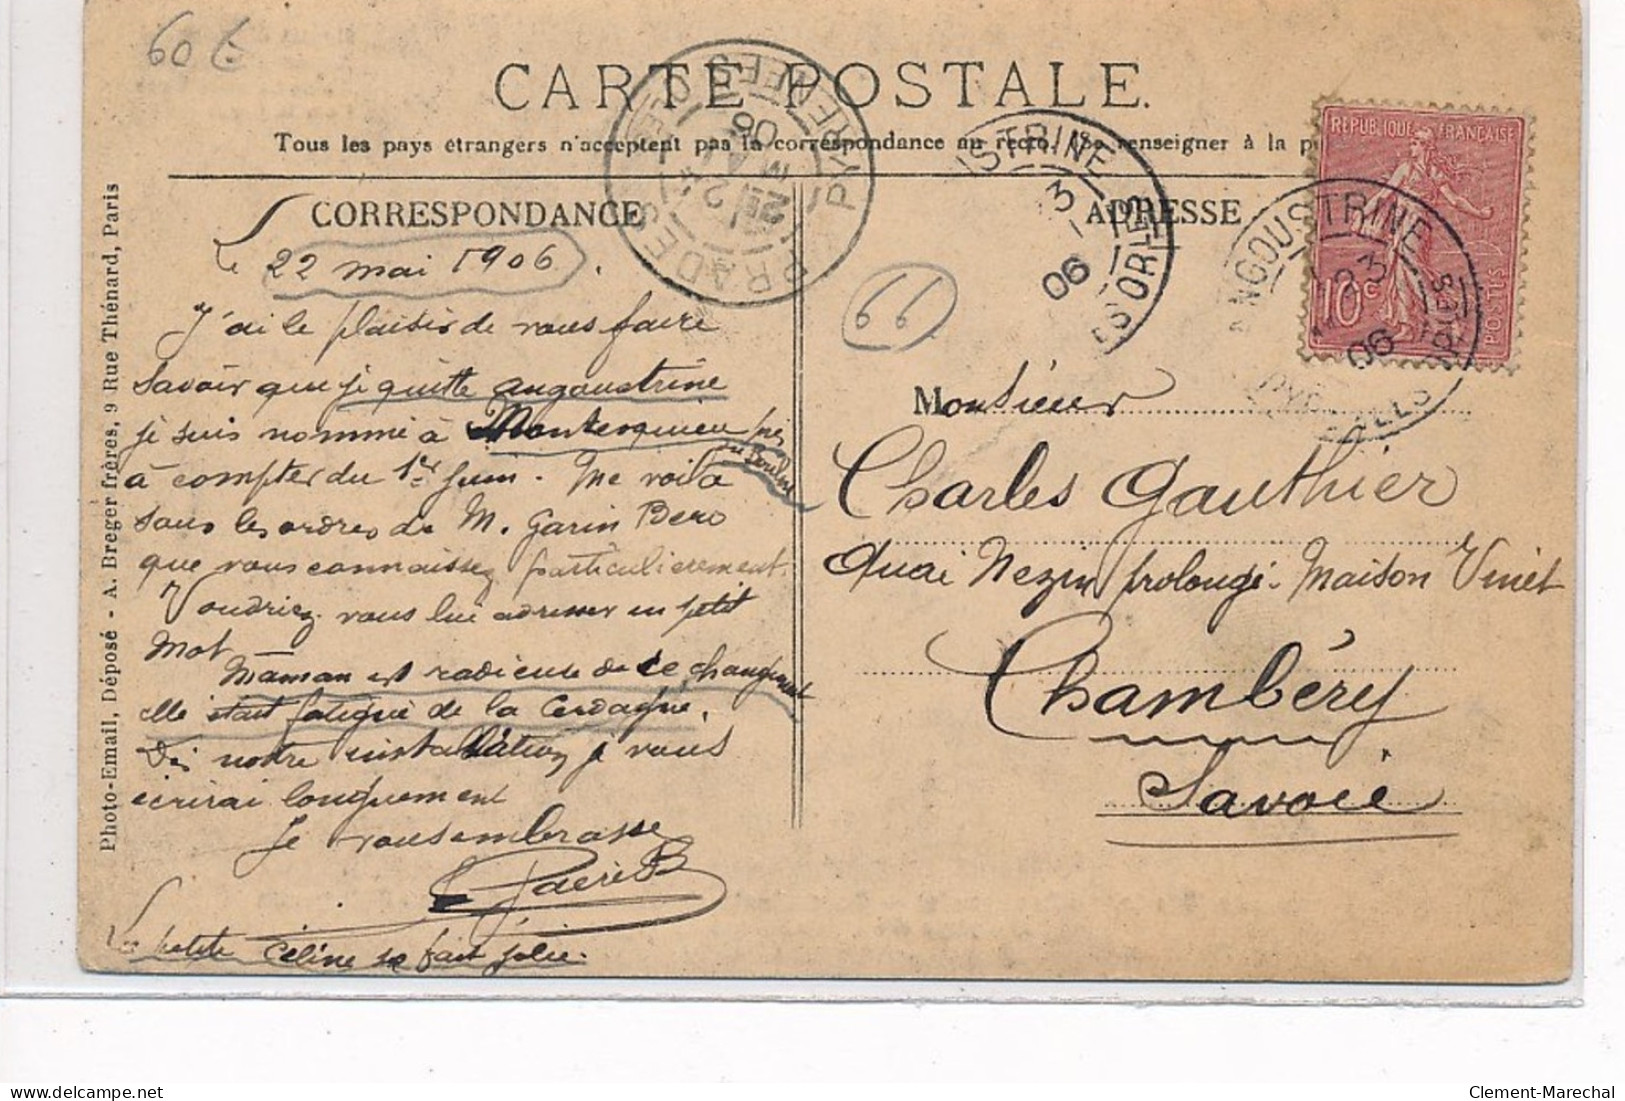 60 €
CARTE POSTALE.
Tous les pays étrangers n'acceptent pas la correspondance au recto. (Se renseigner à la p
CORRESPONDANCE
ADRESSE
Photo-Email, Déposé - A. Breger frères, 9 Rue Thénard, Paris
PRADES PYRENEES
06
USTRINE
3
06
ES ORLES
ANGOUSTRINE
3
06
REPUBLIQUE FRANÇAISE
10c
POSTES
66
Le 22 mai 1906.
J'ai le plaisir de vous faire
savoir que je quitte angoustrine
je suis nommé à Montesquieu près
du Boulou
à compter du 1er Juin. Me voilà
sous les ordres de M. Garin Bero
que vous connaissez particulièrement.
Voudriez vous lui adresser un petit
mot
Maman est radieuse de ce changement
elle était fatiguée de la Cerdagne.
Dès notre installation je vous
écrirai longuement
Je vous embrasse
La petite Céline se fait jolie.
Monsieur
Charles Gauthier
Quai Nezin prolongé. Maison Vinet
Chambéry
Savoie
Clement-Marechal